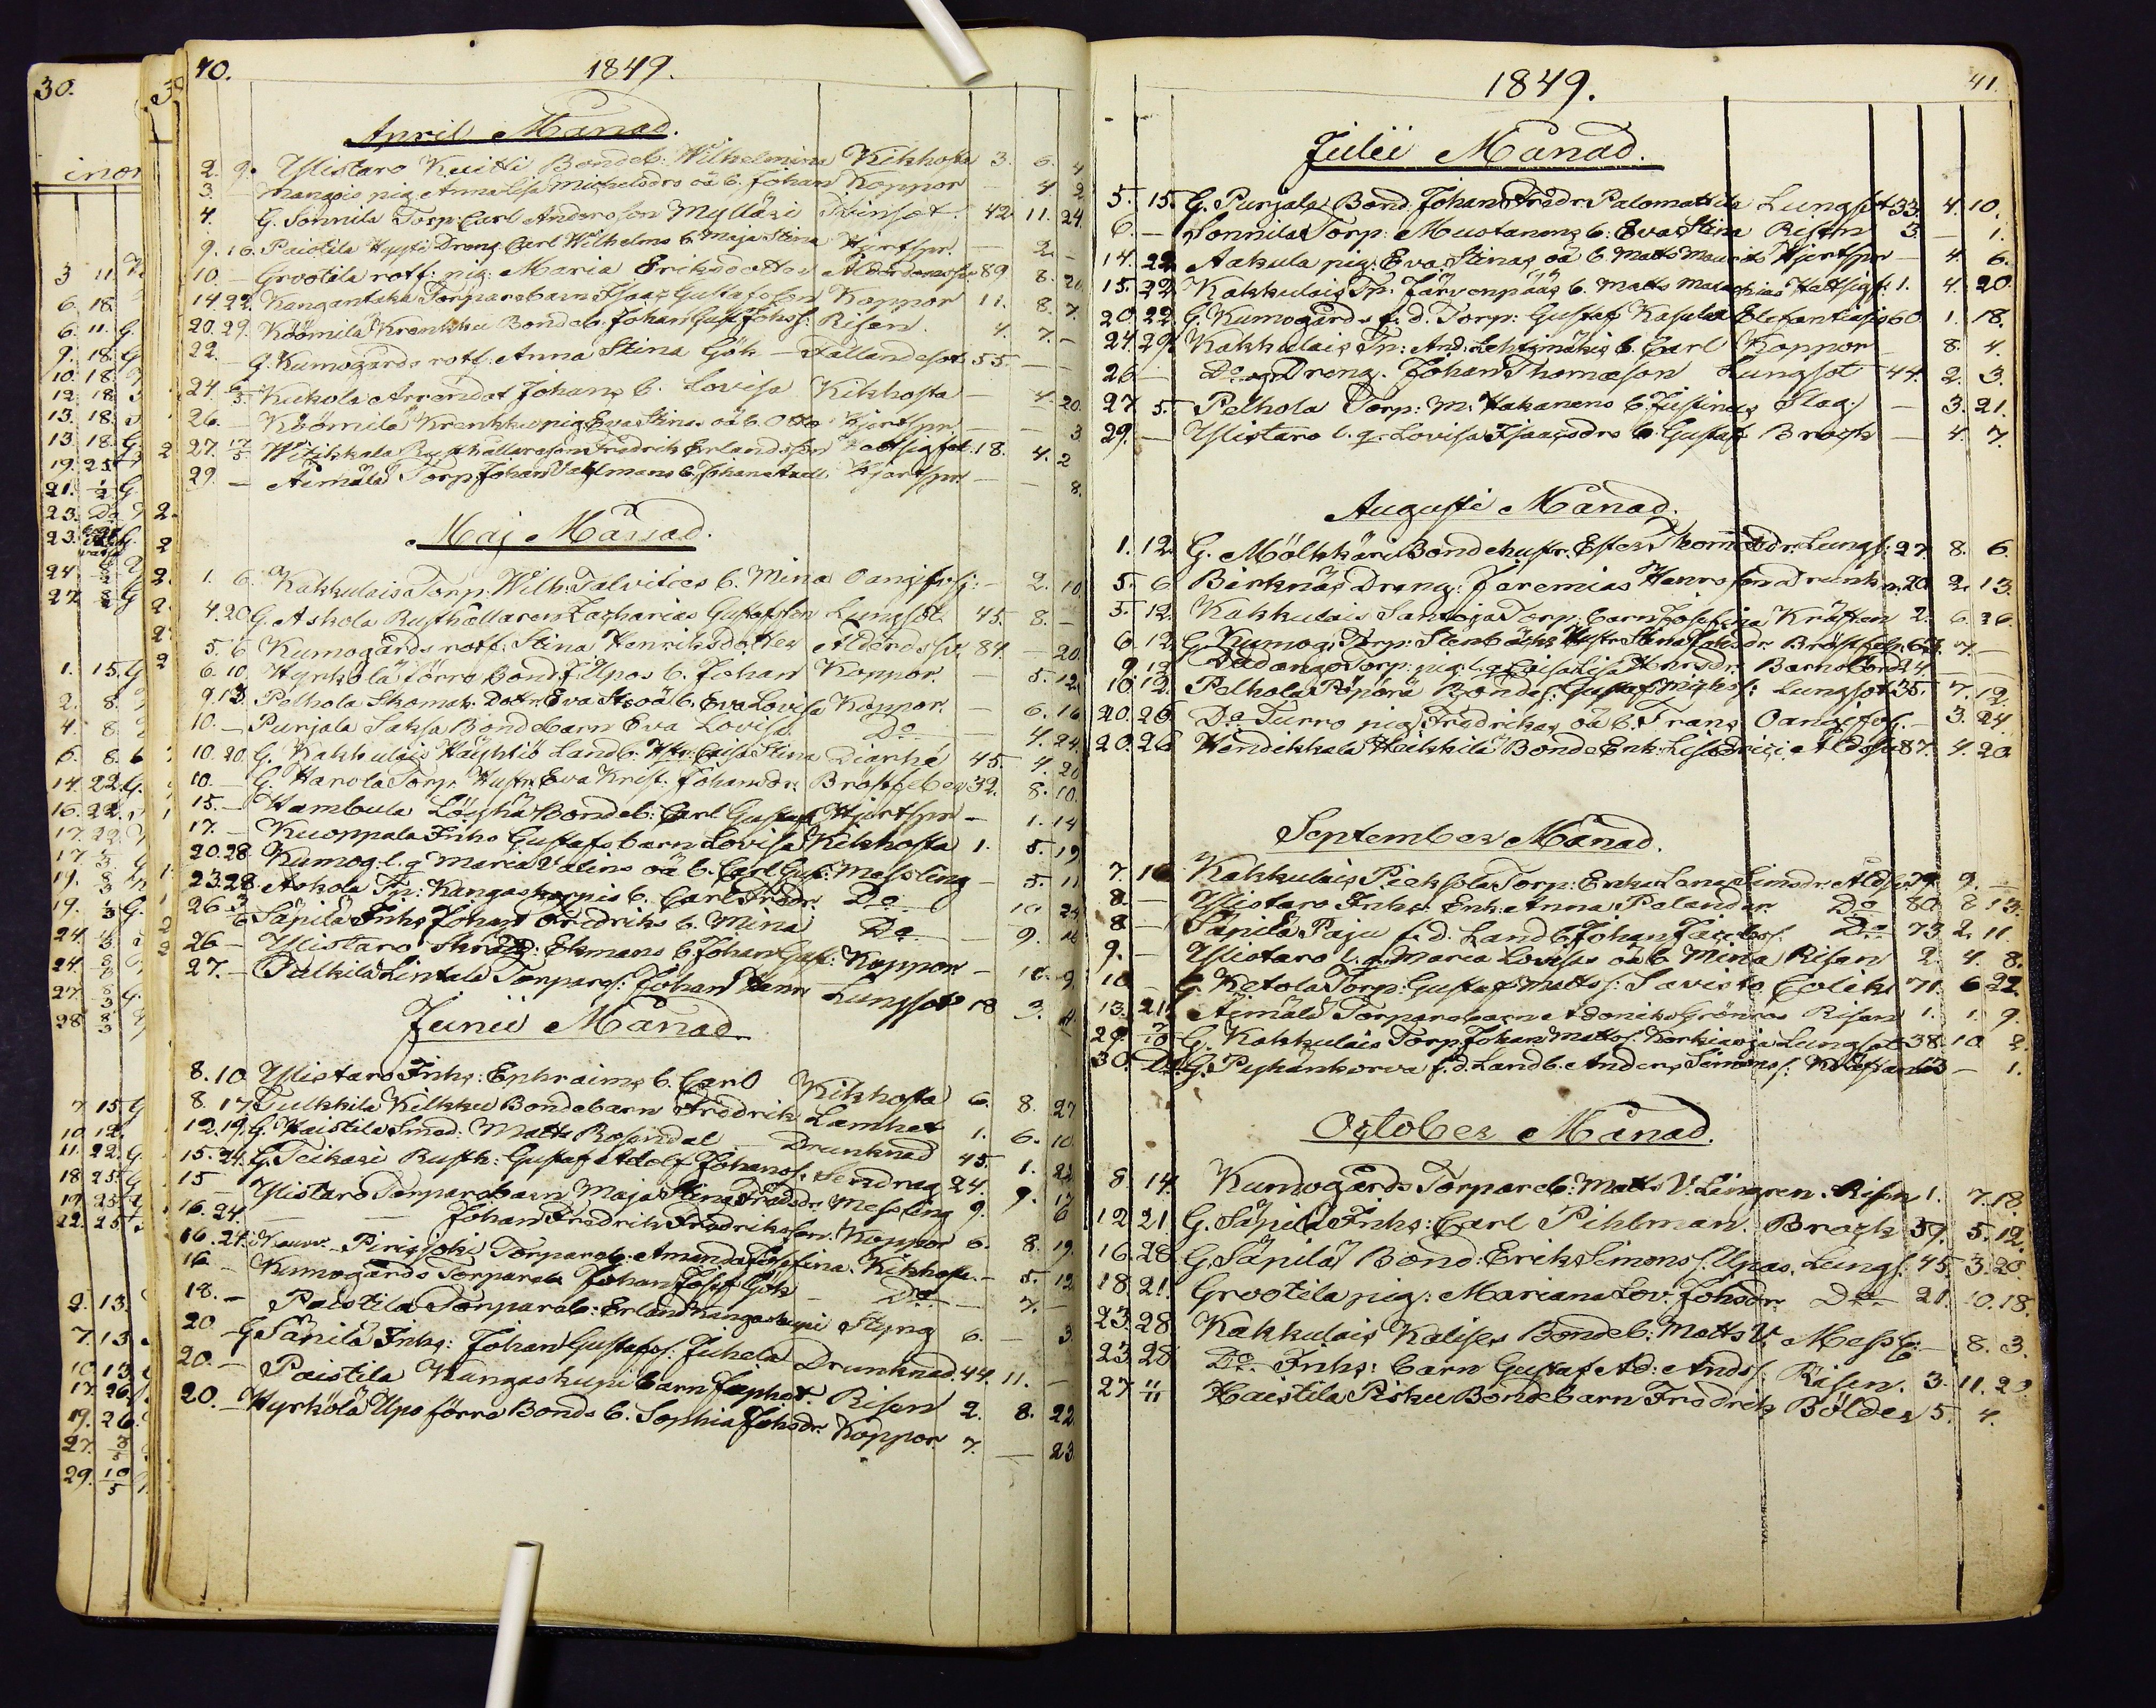 40. 1849.
April Månad.
2. 9. Yllistaro Knitti Bondeb: Wilhelmina Kikhosta 3. 6. 4
3. Mangois pig. Anna Lisa Michelsdrs oä b. Johan Koppor 4. 2
4. G. Sonnila Torp: Carl Andersson Mylläri Twinsot 42. 11. 24.
9. 16. Paistila Hyppi Dreng Carl Wilhelms b. Maja Stina Hjertspr. — 2. —
10. — Grootila rotf: pig: Maria Eriksdotter Ålderdomssv. 89. 8. 20
14 22. Kangantaka Torparebarn Isaac Gustafsson Koppor 11. 8. 7.
20. 29. Köömilä Krenkku Bondeb. Johan Gust. Johsf: Risen. 4. 7. —
22. — G. Kumogårds rotf. Anna Stina Gök — Fallandesot 55. — —
24. 6/5 Kukola Arrendat Johans b. Lovisa Kikhosta — 4. 20.
26. — Köömilä Krenkku pig Eva Stinas oä b. Otto Hjertspr. — — 3
27. 17/5 Witikkala Rusthållareson Fredrik Erlandsson Hättsigfeb. 18. 4. 2
29. — Äimälä Torp. Johan Wahlmans b. Johan Hjertspr. — — 8.
Maj Månad.
1. 6. Kakkulais Torp. Wilh. Talvities b. Mina Oangifvf: — 2. 10
4. 20 G. Askola Rusthållaren Zacharias Gustafsson Lungsot 45. 8. —
5. 6 Kumogårds rotf. Stina Henriksdotter Ålderdssv. 84. — 20.
6. 10. Hyrkölä förra Bond. Upos b. Johan Koppor. — 5. 12.
9. 13. Pelhola Skomak. Dotr. Eva Stas oä b. Eva Lovisa Koppor. — 6. 16
10. — Purjala Saksa Bondebarn Eva Lovisa Do — 4. 24.
10. 20. G. Kakkulais Landb. Hstr. Caisa Stina Diarhé 45. 4. 20
10. — G. Harola Torp. Hustr. Eva Krist. Johansdr. Bröstfeber 32. 8. 10.
15. — Hambula Löyhä Bondeb: Carl Gustaf Hjertspr — 1. 14
17. — Kuoppala Inhs Gustafs barn Lovisa Kikhosta 1. 5. 19
20. 28. Kumog. l. q. Maria Valins oä b. Carl Gust. Messling — 5. 11
23. 28. Askola Tp: Kangaskorpis b. Carl Fredr. Do 10 24
26. 3/6 Säpilä Inhs Johan Fredriks b. Mina Do — 9. 16
26 — Yllistaro Skrädd: Ekmans b. Johan Gust. Koppor — 10. 9
27. — Tulkila Lintala Torpares: Johan Lungsot 18 3.
Junii Månad.
8. 10 Yllistaro Inhs: Ephraims b. Carl Kikhosta 6. 8. 27
8. 17. Tulkkila Kilkku Bondebarn Fredrik Lamhet 1. 6. 10.
12. 19. G. Haistila Smed: Matts Rosendal Drunknad 45. 1. 22
15. 24. G. Teikari Rusth: Gustaf Adolf Johansf: Sendrag 24. 9. 17
15 — Yllistaro Torparebarn Maja Stina Fredsdr: Messling 9. 6
16. 24. — — Johan Fredrik Fredriksson. Koppor 6. 8. 19.
16. 24. Pirisjoki Torpareb. Amanda Josefina. Kikhosta. — 5. 12
16 — Kumogårds Torpareb. Johan Josef Gök — Do — 7. —
18. — Paistila Torpareb: Erland Kangaskupi Styng 6. — 3.
20. — G. Säpilä Inhs: Johan Gustafsf. Juhela Drunknad. 44. 11. —
20. — Paistila Kangaskupi barn Japhet. Risen 2. 8. 22.
20. — Hyrkölä Upo förra Bonds b. Sophia Johsdr. Koppor. 7. — 23
1849. 41.
Julii Månad.
5. 15. G. Purjala Bond. Johan Fredr. Palomattila Lungsot 33. 4. 10.
6. — Sonnila Torp: Mustanens b: Eva Stina Risen 3. — 1.
14. 22. Aakula pig: Eva Stinas oä b. Matts Maurits Hjertspr — 4. 6.
15. 22. Kakkulais Tp. Järvenpääs b. Matts Hättsigf: 1. 4. 20
20. 22. G. Kumogårds f. d. Torp: Gustaf Kasula Elefantiasis 60. 1. 18.
24. 29. Kakkulais Tp: And. Lehtimäkis b. Carl Koppor — 8. 4.
26 — Do Dreng. Johan Thomasson Lungsot 44. 2. 3.
27 5. Pelhola Torp: M. Hakanens b. Justinas Slag. — 3. 21.
29. — Yllistaro l. q. Lovisa Isaacsdrs b. Gustaf Brock — 4. 7.
Augusti Månad.
1. 12. G. Mölkkäri Bondehustr. Ester Thomædr: Lungs: 27 8. 6.
5. 6 Birknäs Dreng: Jeremias Henrsson Drunkn. 20. 2. 13.
5. 12. Kakkulais Torp: barn Josefina Kräftan 2. 6. 26.
6. 12 G. Kumog: Torp: Stenbäcks Hustr. Stina Jaksdr. Bröstfeb. 63. 7. —
9. 12 Torp: pig. l. q. Caisa Lisa Henrsdr. Barnsbörd 24.
10. 12. Pelhola Pöpörä Bondes: Gustaf Michsf: Lungsot 35. 7. 12.
20. 26. Do Turro pig Fredrikas oä b. Frans Oangifvf. — 3. 24.
20. 26 Hendikkala Heikkilä Bonde Enk: Lisa Åldssv. 87. 4. 20
September Månad.
7. 16 Kakkulais Pieksola Torp: Enka Lena Simsdr. Åldssv. 79. 9. —
8. — Yllistaro Inhs: Enk. Anna Palander Do 80. 8 13.
8 — Säpilä Paju f. d. Landb. Johan Jacobsf. Do 73. 2. 11.
9. — Yllistaro l. q. Maria Lovisas oä b. Mina Risen 2. 4. 8.
10 — G. Ketola Torp: Gustaf Mattsf: Savisto Colik 71. 6 22.
13. 21. Äimälä Torparebarn Adonike Grönros Risen 1. 1. 9
29. 7/10 G. Kakkulais Torp. Johan Mattsf. Korkiaoja Lungsot 38. 10 2.
30. Do G. Pyhänkorva f. d. Landb. Anders Simonsf. Kräftan 63 — 1.
October Månad.
8 14. Kumogårds Torpareb: Matts V. Lingren. Risen 1. 7. 18.
12 21 G. Säpilä Inhs: Carl Pihlman. Brock 59. 5. 12.
16. 28. G. Säpilä Bond: Erik Simonsf. Upas. Lungs. 45. 3. 20.
18. 21. Grootila pig: Mariana Lov. Johsdr. Do 21. 10. 18.
23. 28. Kakkulais Kalises Bondeb: Matts V. Messl: — 8. 3.
23. 28 Do Inhs: barn Gustaf Ad: Andsf. Risen. 3. 11. 20
27 11/11 Haistila Pisku Bondebarn Fredrik Bölder 5. 4.